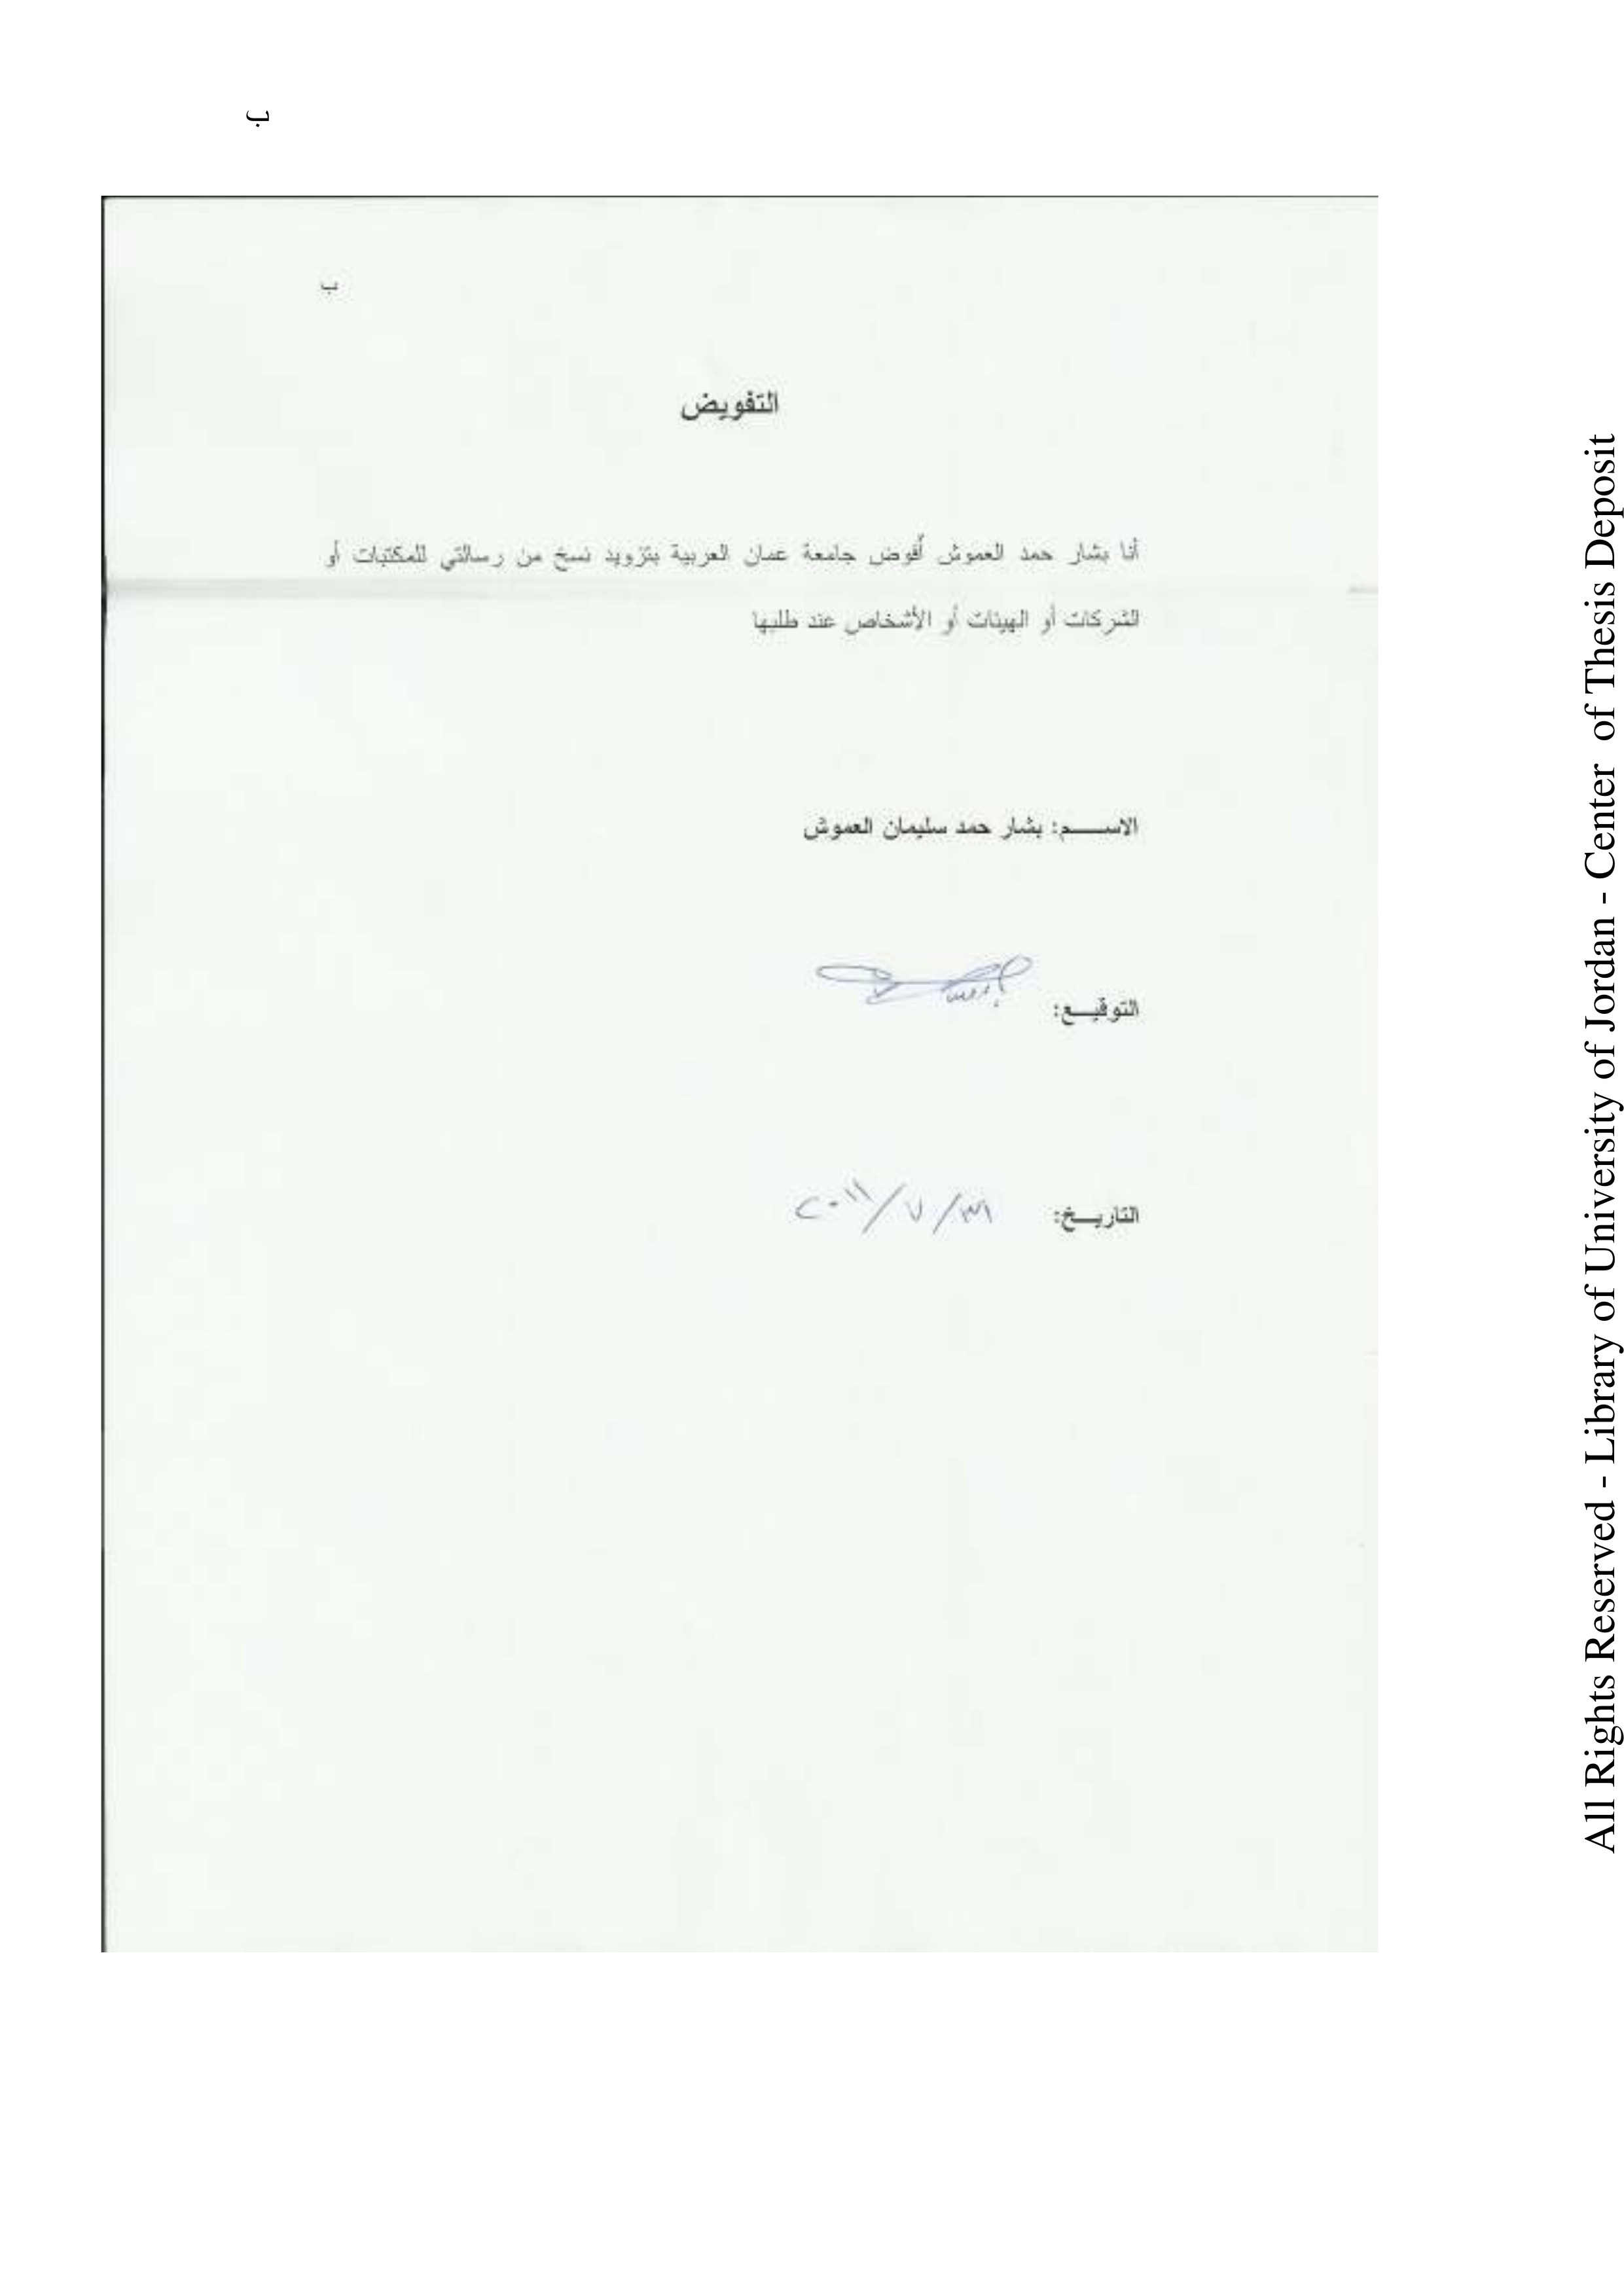 ب
ب
التفويض
أنا بشار حمد العموش أُفوض جامعة عمان العربية بتزويد نسخ من رسالتي للمكتبات أو
الشركات أو الهيئات أو الأشخاص عند طلبها
الاســـــم: بشار حمد سليمان العموش
التوقيــع:
التاريــخ: ٣١/ ٧ /٢٠١١
All Rights Reserved - Library of University of Jordan - Center of Thesis Deposit